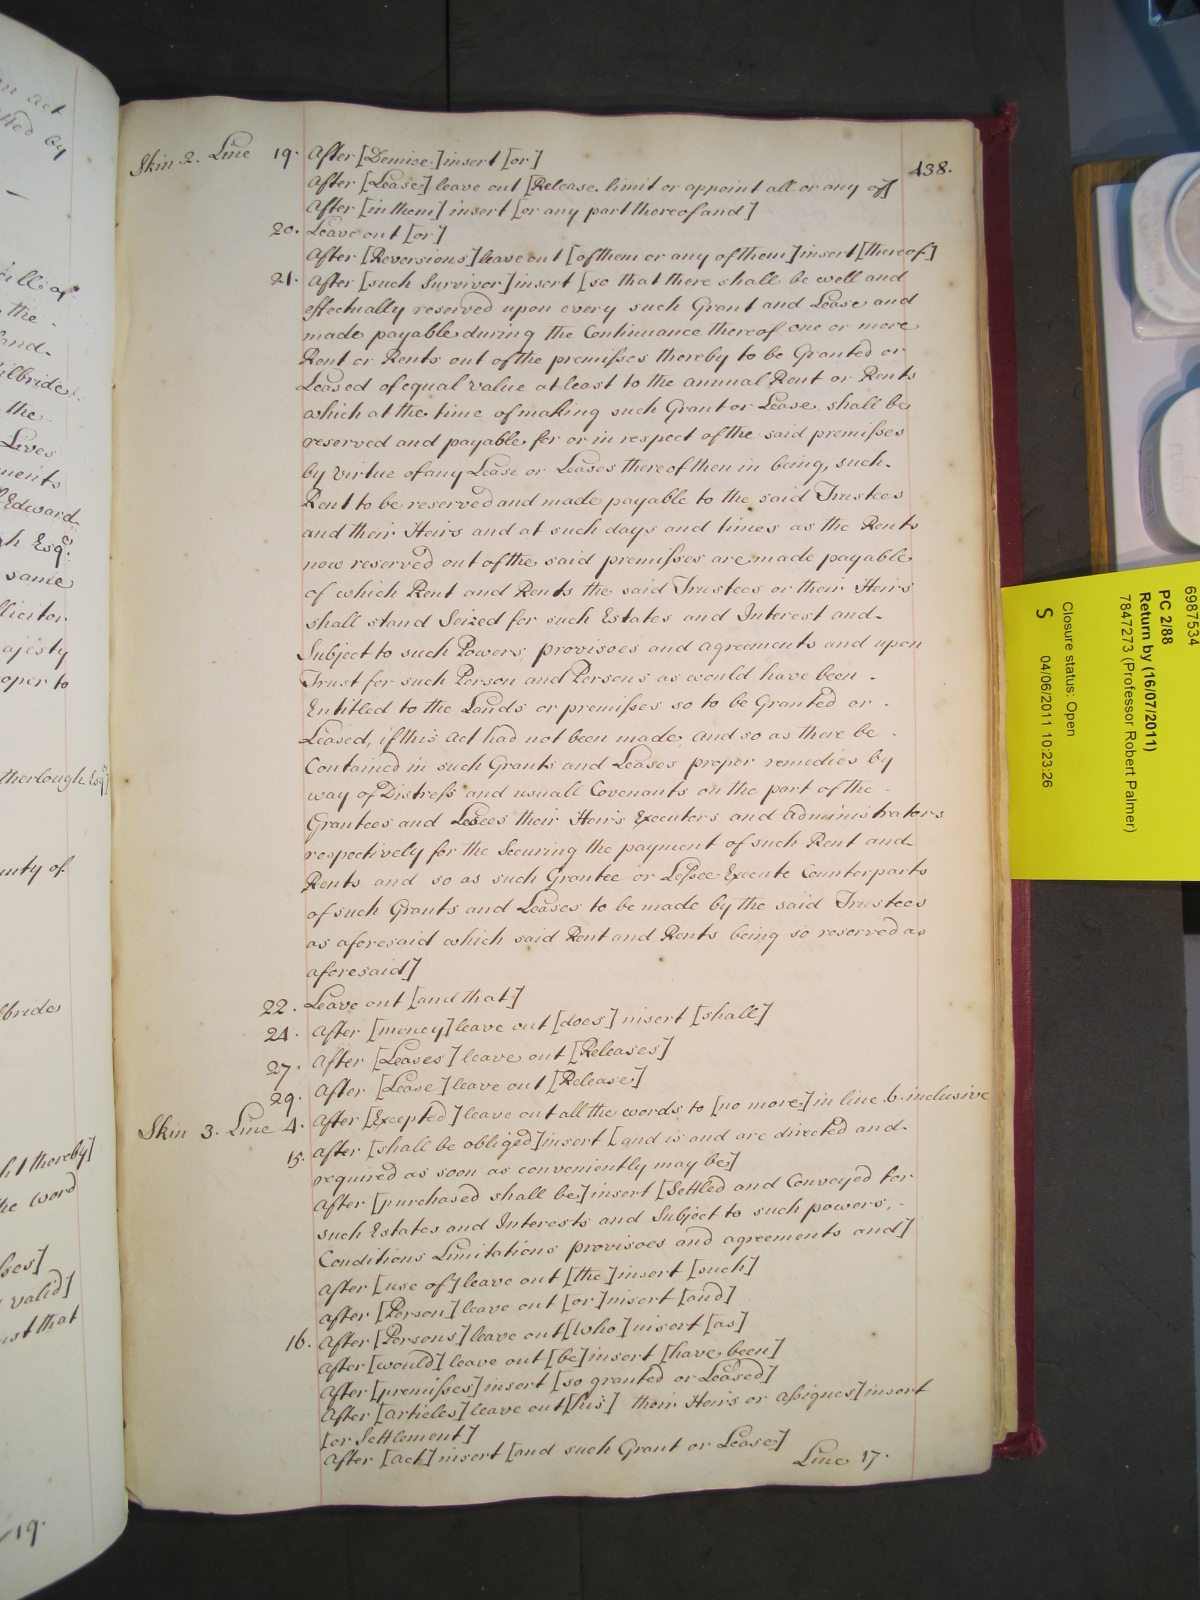 438.
Skin 2. Line 19. After [Demise] insert [or]
After [Lease] leave out [Release. limit or appoint all or any of]
After [in them] insert [or any part thereof and]
20. Leave out [or]
After [Reversions] leave out [of them or any of them] insert [thereof]
21. After [such Survivor] insert [so that there shall be well and
effectually reserved upon every such Grant and Lease and
made payable during the Continuance thereof one or more
Rent or Rents out of the premisses thereby to be Granted or
Leased of equal value at least to the annual Rent or Rents
which at the time of making such Grant or Lease shall be
reserved and payable for or in respect of the said premisses
by virtue of any Lease or Leases thereof then in being, such
Rent to be reserved and made payable to the said Trustees
and their Heirs and at such days and times as the Rents
now reserved out of the said premisses are made payable
of which Rent and Rents the said Trustees or their Heirs
shall stand Seized for such Estates and Interest and
Subject to such Powers, provisoes and agreements and upon
Trust for such Person and Persons as would have been
Entitled to the Lands or premisses so to be Granted or
Leased, if this Act had not been made, and so as there be
Contained in such Grants and Leases proper remedies by
way of Distress and usuall Covenants on the part of the
Grantees and Lesees their Heirs Executors and administrators
respectively for the Securing the payment of such Rent and
Rents and so as such Grantee or Lessee Execute Counterparts
of such Grants and Leases to be made by the said Trustees
as aforesaid which said Rent and Rents being so reserved as
aforesaid]
22. Leave out [and that]
24. After [money] leave out [does] insert [shall]
27. After [Leases] leave out [Releases]
29. After [Lease] leave out [Release]
Skin 3. Line 4. After [Excepted] leave out all the words to [no more] in line 6. inclusive
15. After [shall be obliged] insert [and is and are directed and
required as soon as conveniently may be]
After [purchased shall be] insert [Settled and Conveyed for
such Estates and Interests and Subject to such powers,
Conditions Limitations provisoes and agreements and]
After [use of] leave out [the] insert [such]
after [Person] leave out [or] insert [and]
16. After [Persons] leave out [who] insert [as]
After [would] leave out [be] insert [have been]
After [premisses] insert [so granted or Leased]
After [articles] leave out [his] their Heirs or assignes] insert
[or Settlement]
After [act] insert [and such Grant or Lease]
Line 17.
n act
by
the
and
the
Lives
ments
Edward
h Esqr.
same
llicitor
ajesty
oper to
therlough Esqr]
unty of
lbrides
thereby]
he word
ses]
valid]
ust that
19.
6987534
PC 2/88
Return by (16/07/2011)
7847273 (Professor Robert Palmer)
Closure status: Open
S 04/06/2011 10:23:26